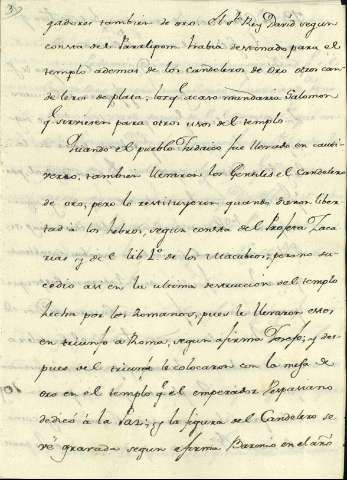 gadores tambien de oro. El Sto Rey David segun
consta del Paralipom. habia destinado para el
templo ademas de los candeleros de oro otros can
deleros de plata, los qe. acaso mandaria Salomon
qe. sirviesen para otros usos del templo
Quando el pueblo Judaico fue llevado en cauti-
verio, tambien llevaron los Gentiles el candelero
de oro, pero lo restituyeron quando dieron liber
tad a los hebreos, segun consta del Profeta Zaca
rias y de el lib. 1º. de los Macabeos; pero no su-
cedio asi en la ultima destruccion del templo
hecha por los Romanos, pues le llevaron estos
en triunfo a Roma, segun afirma Josefo; y des-
pues del triunfo le colocaron con la mesa de
oro en el templo qe. el emperador Vespasiano
dedicó á la Paz; y la figura del Candelero se
vé gravada segun afirma Baronio en el año